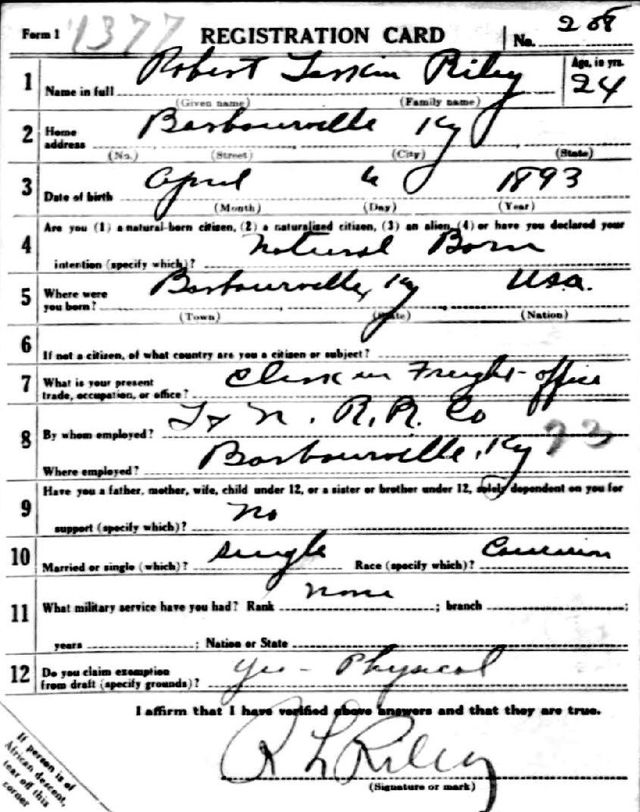 Form 1 1377 REGISTRATION CARD No. 208
1 Name in full Robert Riley Age, in yrs. 24
(Given name) (Family name)
2 Home address Barbourville Ky
(No.) (Street) (City) (State)
3 Date of birth April 6 1893
(Month) (Day) (Year)
4 Are you (1) a natural-born citizen, (2) a naturalized citizen, (3) an alien, (4) or have you declared your
intention (specify which)? Natural Born
5 Where were you born? Barbourville, Ky U.S.a.
(Town) (State) (Nation)
6 If not a citizen, of what country are you a citizen or subject?
7 What is your present trade, occupation, or office? Clerk in Freight-office
8 By whom employed? L + N. R.R. Co
Where employed? Barbourville, Ky 23
9 Have you a father, mother, wife, child under 12, or a sister or brother under 12, solely dependent on you for
support (specify which)? No
10 Married or single (which)? Single Race (specify which)?
11 What military service have you had? Rank None ; branch ;
years ; Nation or State
12 Do you claim exemption from draft (specify grounds)? Yes - Physical
I affirm that I have verified above answers and that they are true.
R L Riley
(Signature or mark)
If person is of
African descent,
tear off this
corner